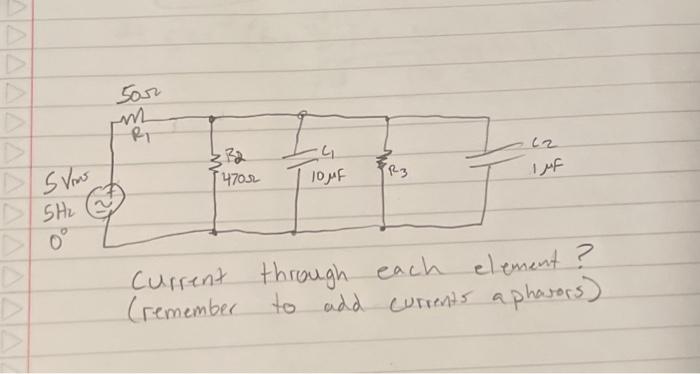 50Ω
R1
R2
470Ω
C1
10 μF
R3
C2
1 μF
5 Vrms
5Hz
0°
Current through each element?
(remember to add currents a phasors)